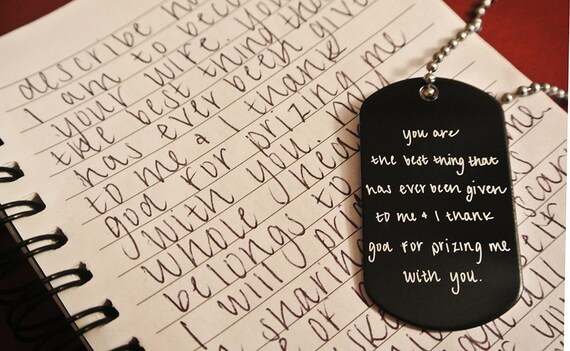 describe h
I am to bec
your wife. you
the best thing th
has ever been give
to me & I thank
god for prizing me
with you. my
whole hea
belongs to
I will pri
sharin
you are
the best thing that
has ever been given
to me & I thank
god for prizing me
with you.
me.
all